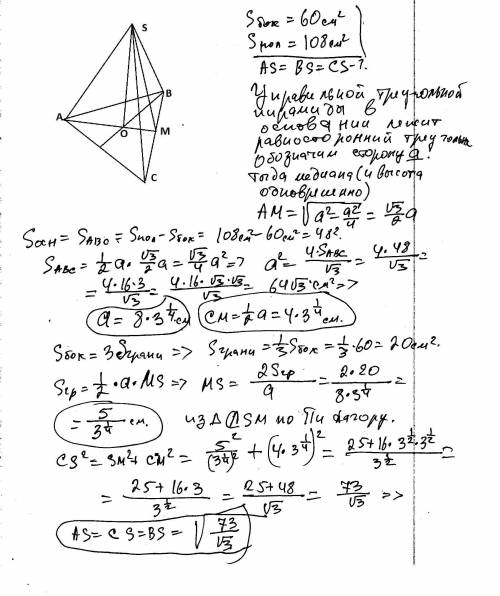 S
A
B
O
M
C
Sбок = 60см²
Sпол = 108см²
AS = BS = CS - ?.
У правильной треугольной
пирамиды в
основании лежит
равносторонний треугольн
обозначим сторону a.
тогда медиана (и высота
одновременно)
AM = √(a² - a²/4) = √3/2 a
Sосн = SABO = Sпол - Sбок = 108см² - 60см² = 48².
SABC = 1/2 a · √3/2 a = √3/4 a² => a² = 4·SABC/√3 = 4·48/√3 =
= 4·16·3/√3 = 4·16·√3·√3/√3 = 64√3 · см² =>
a = 8·3^(1/4) см   CM = 1/2 a = 4·3^(1/4) см.
Sбок = 3Sграни => Sграни = 1/3 Sбок = 1/3 · 60 = 20см².
Sгр = 1/2 · a · MS => MS = 2Sгр/a = 2·20/8·3^(1/4) =
= 5/3^(1/4) см.   из Δ SM по Пифагору.
CS² = SM² + CM² = 5²/(3^(1/4))² + (4·3^(1/4))² = 25+16·3^(1/2)·3^(1/2)/3^(1/2) =
= 25+16·3/3^(1/2) = 25+48/√3 = 73/√3 =>
AS = CS = BS = √(73/√3)